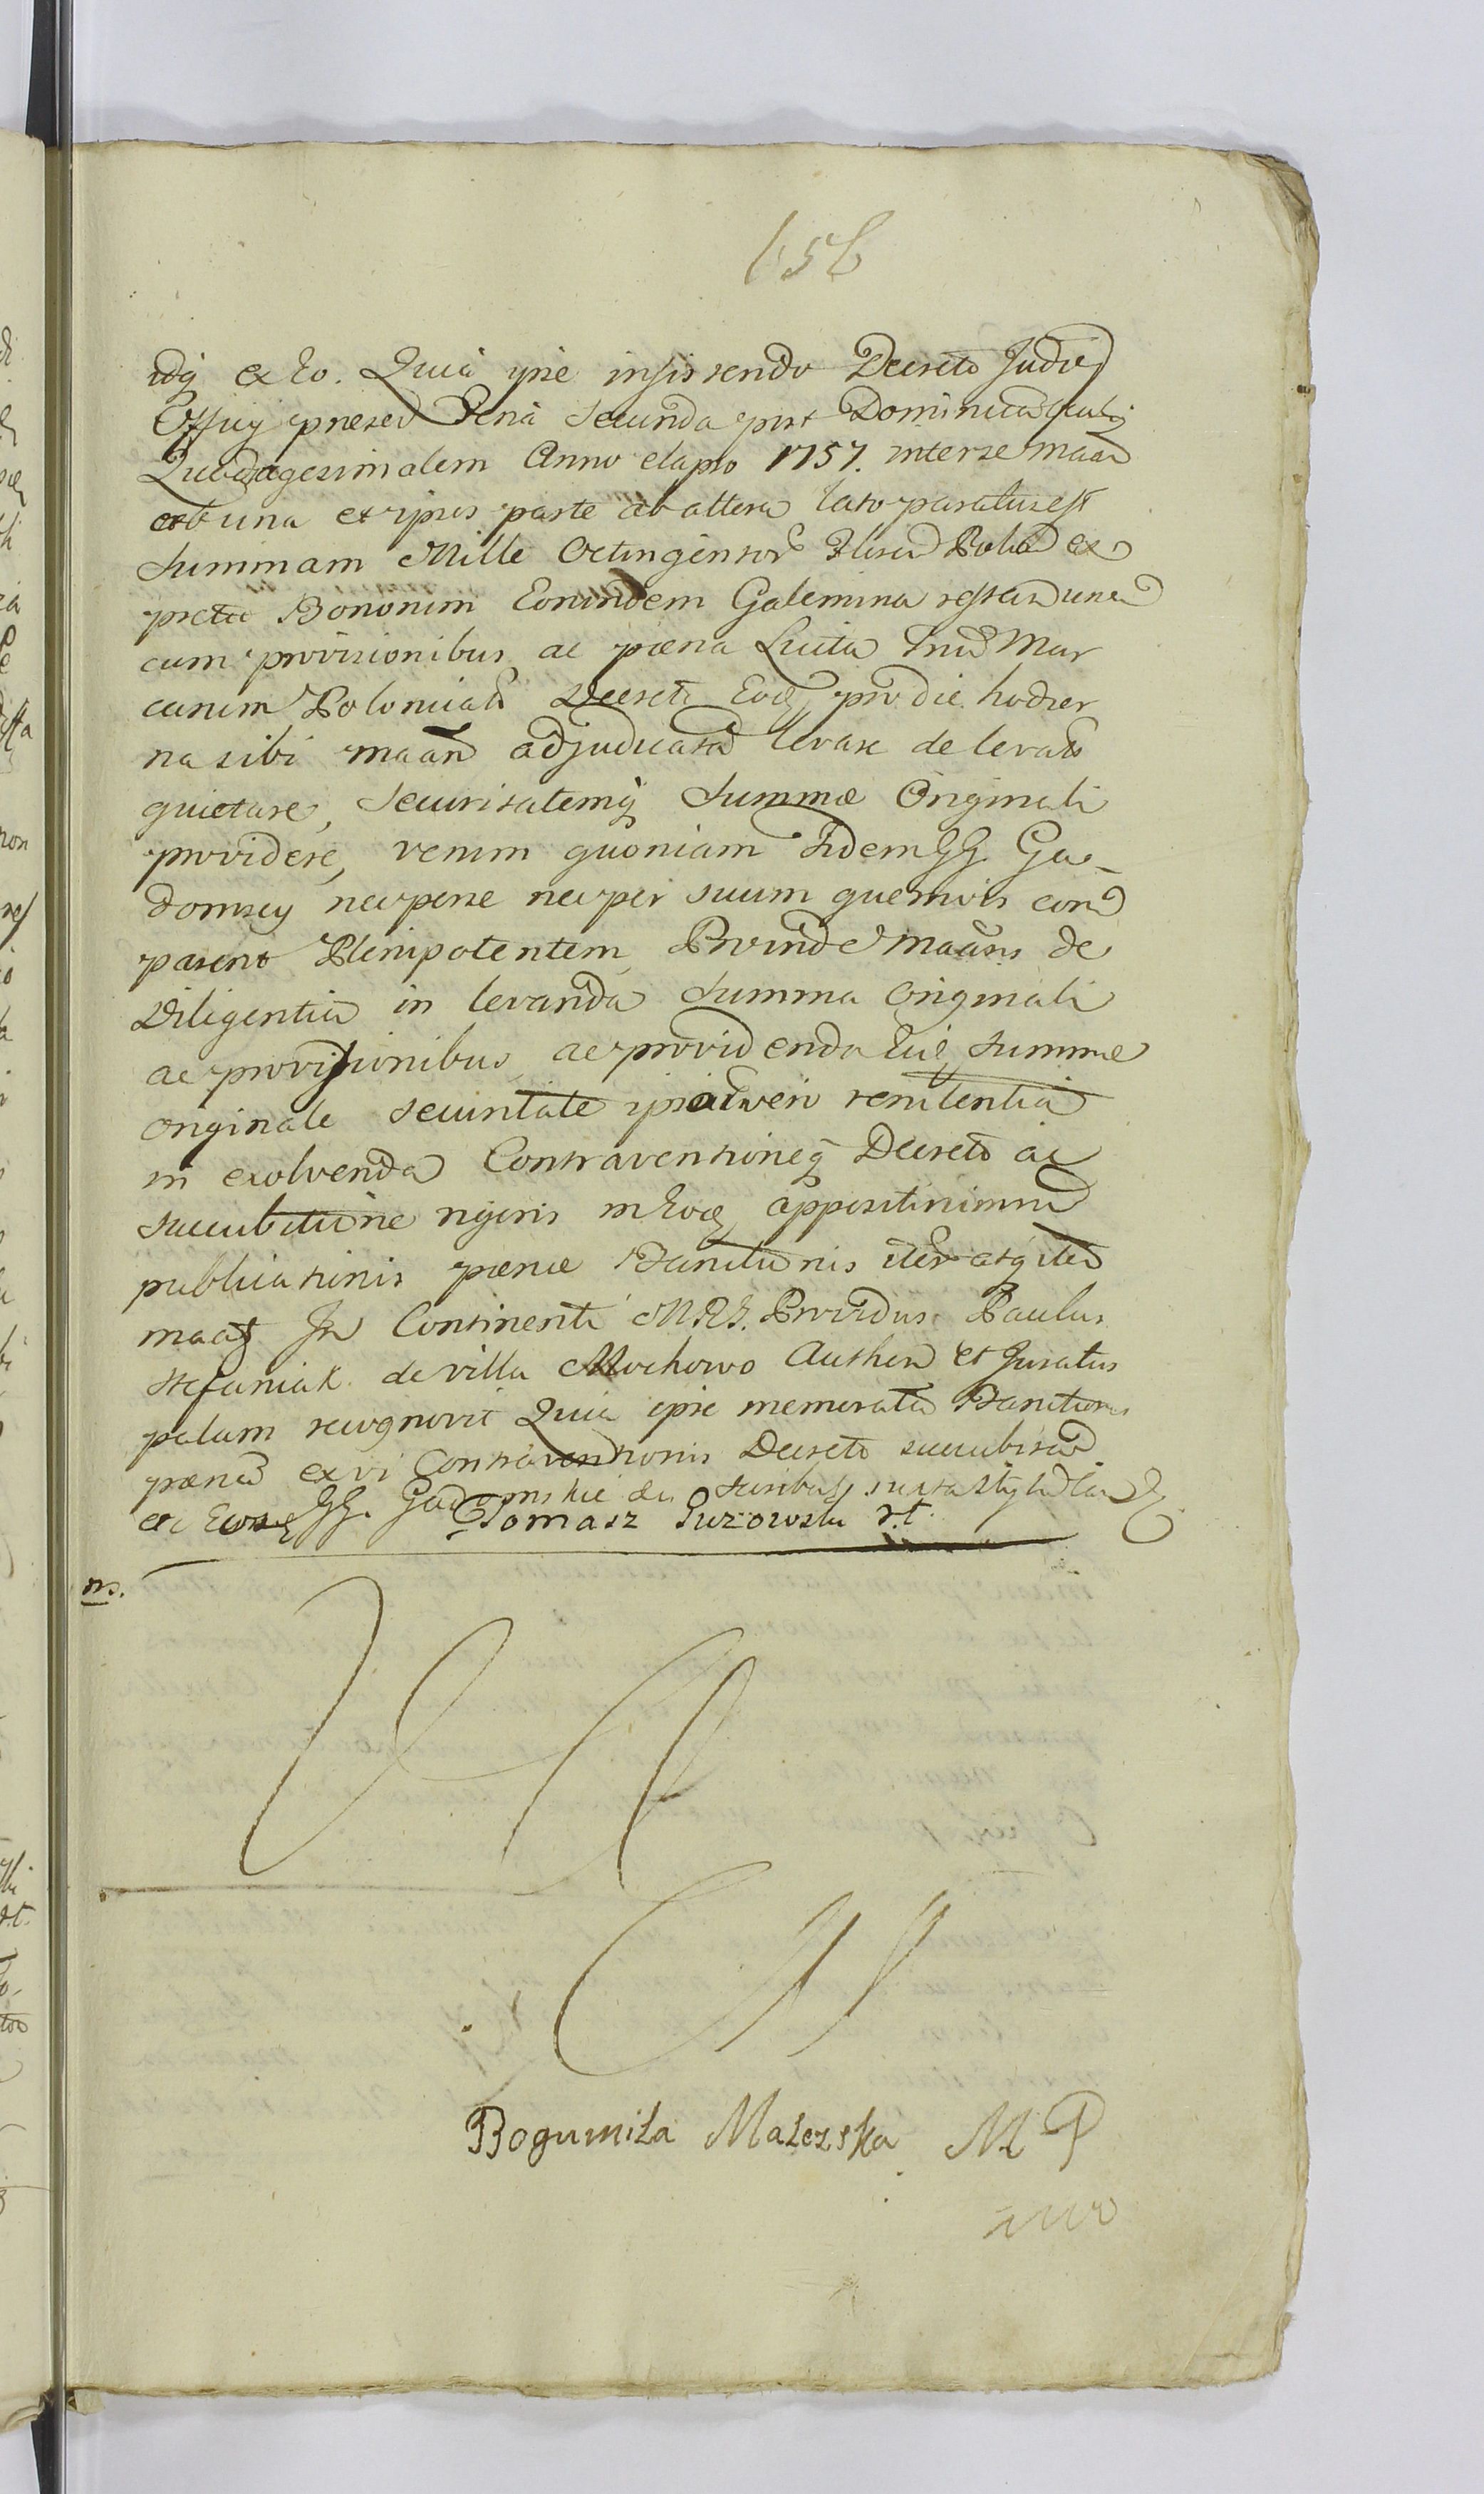 656
idq ex Eo. Quia ipse insistendo Decreto Judic
Officij præsen Feria Secunda post Dominicam
Quadragesimalem Anno elapso 1757. interse maan
ab una et ipsos parte ab altera lato paratus est
Summam Mille Octingentor Flor Polon ex
pretio Bonorum Eorundem Galemina restan una
cum provisionibus ac pæna Luita Trium Mar
carum Polonical Decreto Eoq pro die hodier
na sibi maan adjudicata levare de levatis
quietare, Securitatemq Summæ Originali
providere, verum quoniam Iidem GG Ga-
domscy nec per se nec per suum quemvis com
parent Plenipotentem Proinde maans de
Diligentia in levanda Summa Originali
ac provisionibus, ac providenda Eiq Summæ
Originale Securitate ipsor vero renitentia
in exolvenda Contraventioneq Decreto ac
succubitione rigoris in Eoq appositi nimru
publicationis pœnæ Banitionis iter atq iter
maatg In Continenti MRG. Providus Paulus
Stefaniak de villa Mochowo Authen et Juratus
palam recognovit Quia ipse memorata Banitionis
pœna ex vi Contraventionis Decreto succubitam
et Eosq GG. Gadomskie
Tomasz Puzowski
ms.
Bogumiła Małezska MP